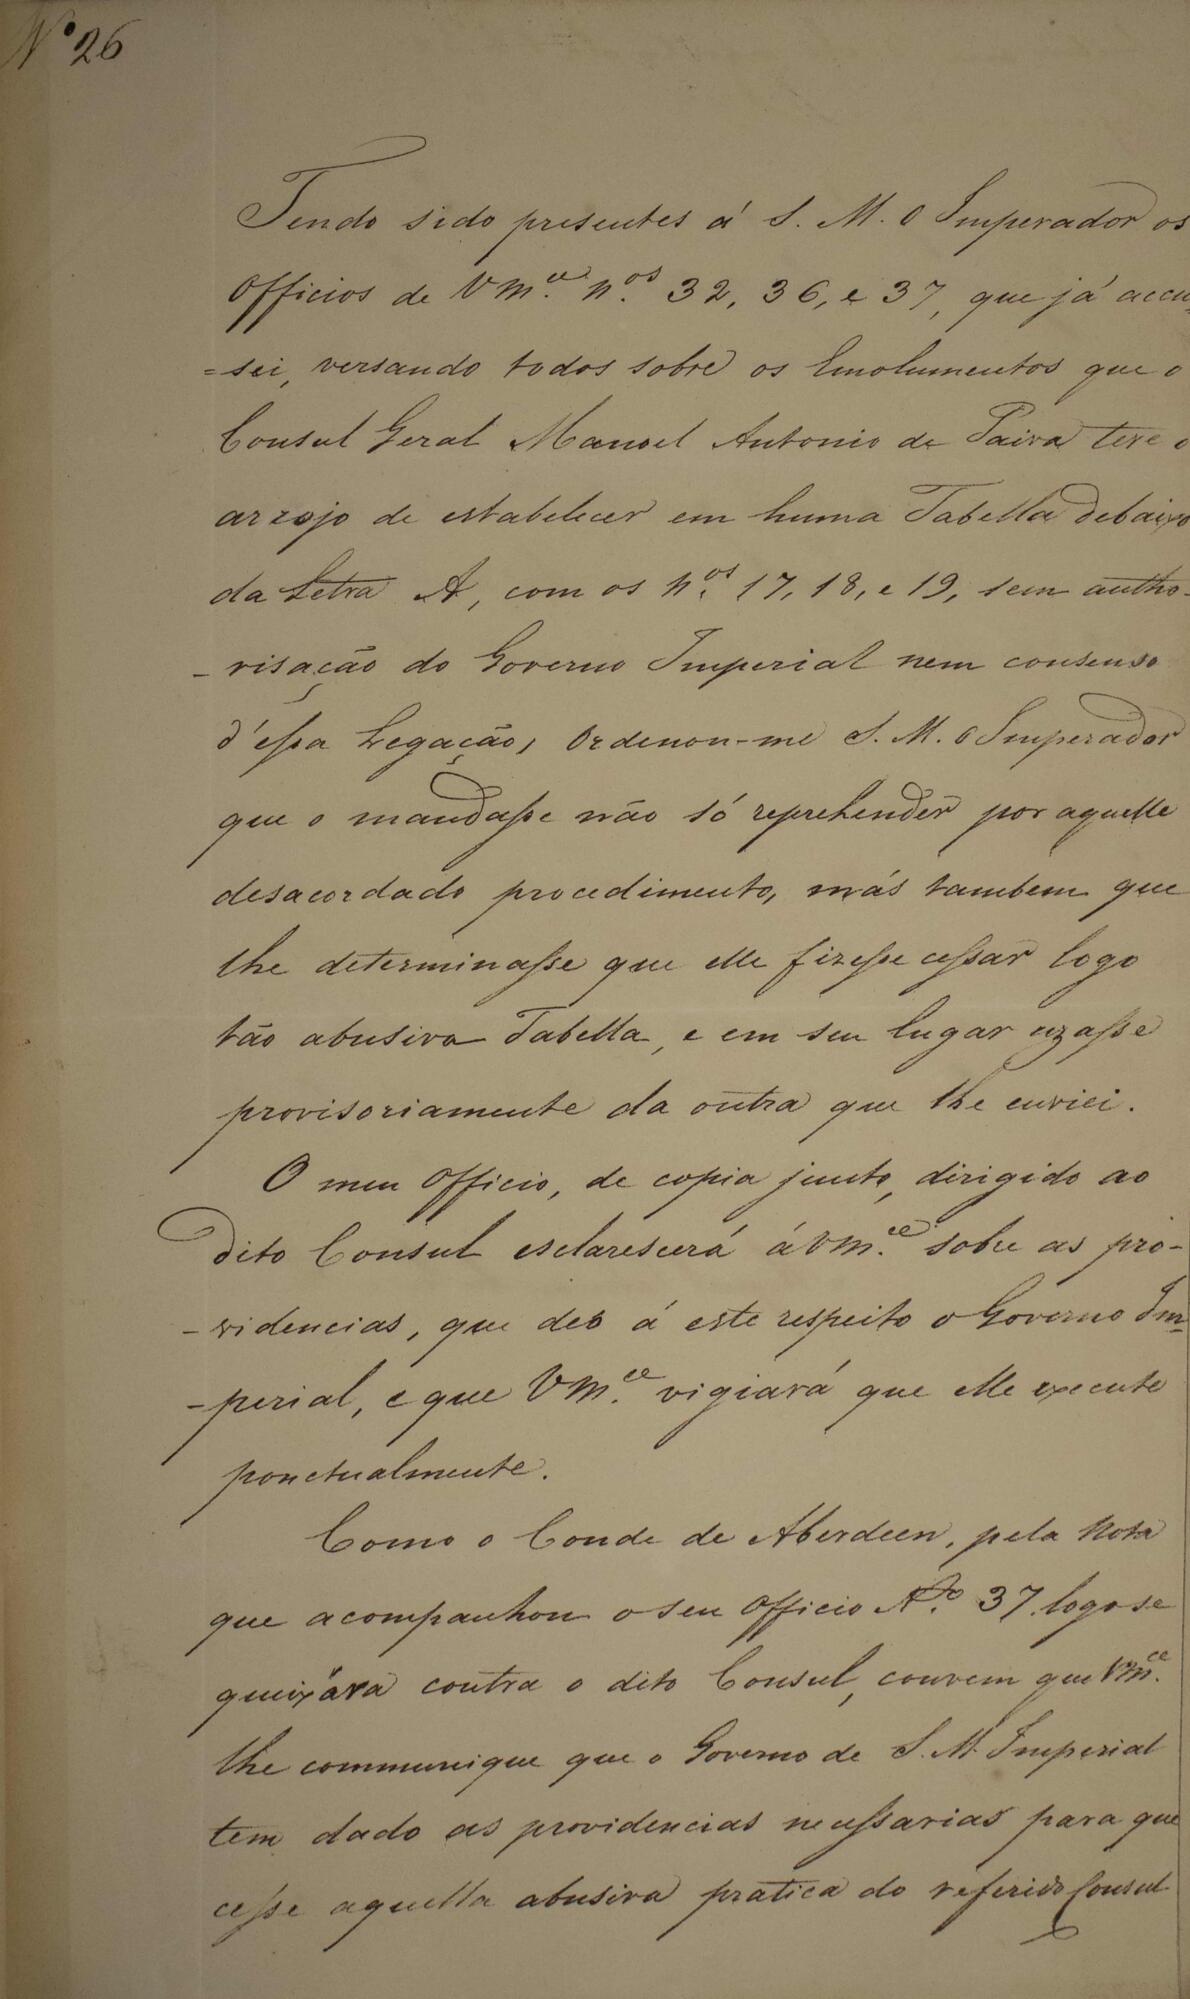 Nº 26
Tendo sido presentes á S. M. O Imperador os
Officios de Vm.ce N.os 32, 36, e 37, que já accu-
=sei, versando todos sobre os Emolumentos que o
Consul Geral Manoel Antonio de Paiva teve o
arrojo de estabelecer em huma Tabella debaixo
da Letra A, com os N.os 17, 18, e 19, sem autho-
-risação do Governo Imperial nem consenso
d'essa Legação, Ordenou-me S. M. O Imperador
que o mandasse não só reprehender por aquelle
desacordado procedimento, más tambem que
lhe determinasse que elle fizesse cessar logo
tão abusiva Tabella, e em seu lugar uzasse
provisoriamente da outra que lhe enviei.
O meu Officio, de copia junto, dirigido ao
dito Consul esclarescerá á Vm.ce sobre as pro-
-videncias, que deo á este respeito o Governo Im-
-perial, e que Vm.ce vigiará que elle execute
ponctualmente.
Como o Conde de Aberdeen, pela Nota
que acompanhou o seu Officio N.º 37 logo se
queixára contra o dito Consul, convem que Vm.ce
lhe communique que o Governo de S. M. Imperial
tem dado as providencias necessarias para que
cesse aquella abusiva pratica do referido Consul